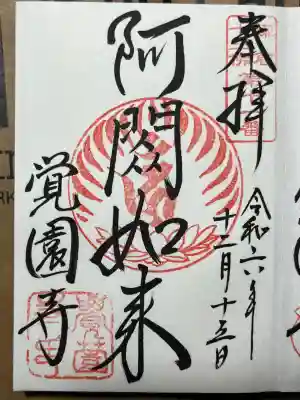 奉拝
令和六年
十二月十三日
阿閦如来
覚園寺